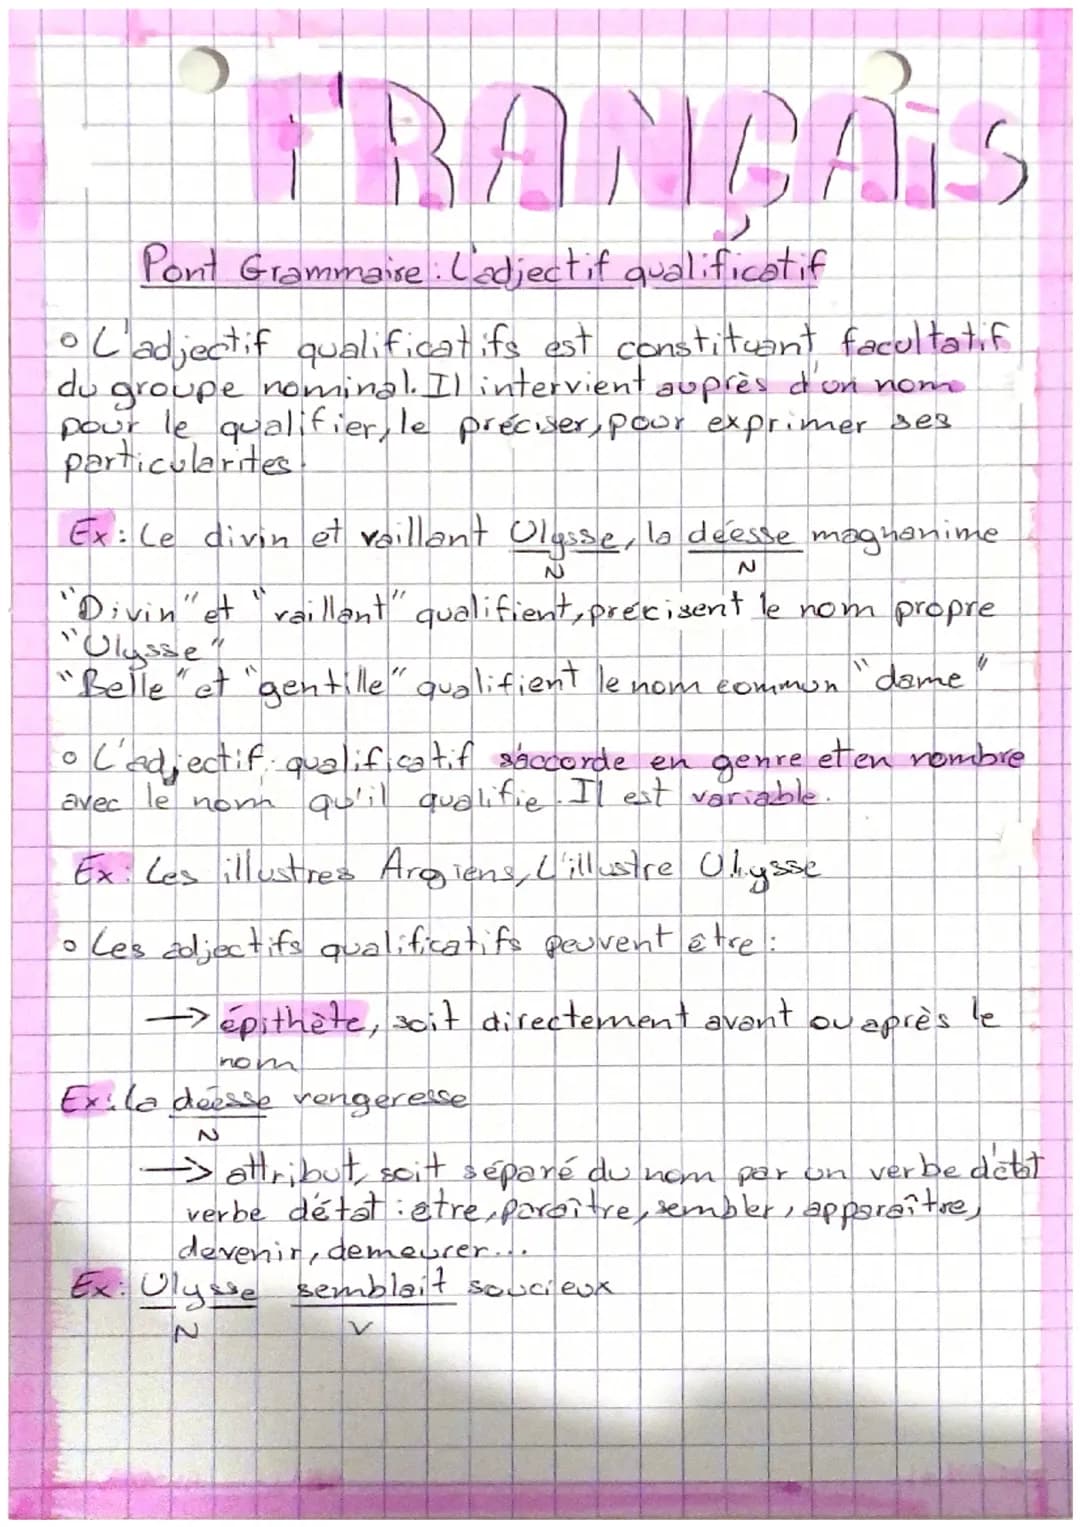 FRANÇAIS
Pont Grammaire : L'adjectif qualificatif
• L'adjectif qualificatifs est constituant facultatif
du groupe nominal. Il intervient auprès d'un nom
pour le qualifier, le préciser, pour exprimer ses
particularites.
Ex : Le divin et vaillant Ulysse, la déesse magnanime
N N
"Divin" et "vaillant" qualifient, précisent le nom propre
"Ulysse"
"Belle" et "gentille" qualifient le nom commun "dame"
• L'adjectif qualificatif s'accorde en genre et en nombre
avec le nom qu'il qualifie. Il est variable.
Ex : Les illustres Argiens, L'illustre Ulysse
• Les adjectifs qualificatifs peuvent être :
→ épithète, soit directement avant ou après le
nom
Ex : la déesse vengeresse
N
→ attribut, soit séparé du nom par un verbe d'état
verbe d'état : etre, paraître, sembler, apparaître,
devenir, demeurer...
Ex : Ulysse semblait soucieux
N V